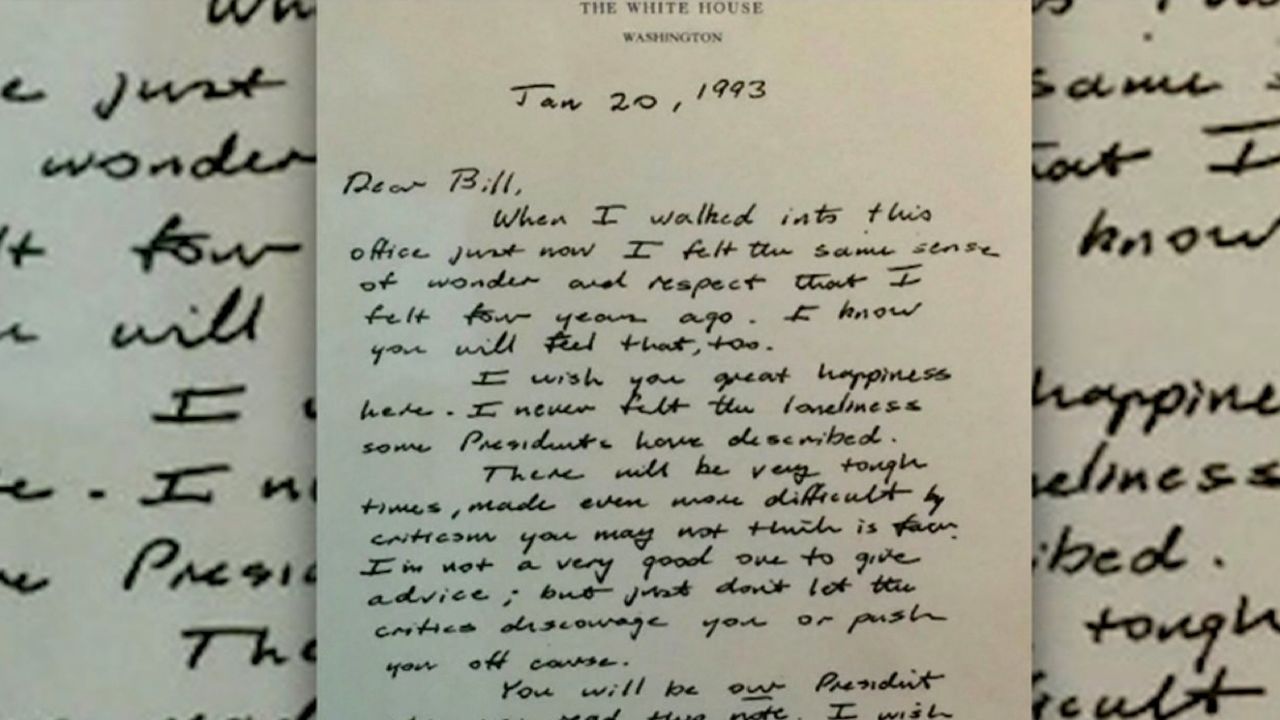 THE WHITE HOUSE
WASHINGTON
Jan 20, 1993
Dear Bill,
When I walked into this
office just now I felt the same sense
of wonder and respect that I
felt four years ago. I know
you will feel that, too.
I wish you great happiness
here. I never felt the loneliness
some Presidents have described.
There will be very tough
times, made even more difficult by
criticism you may not think is fair.
I'm not a very good one to give
advice; but just don't let the
critics discourage you or push
you off course.
You will be our President
when you read this note. I wish